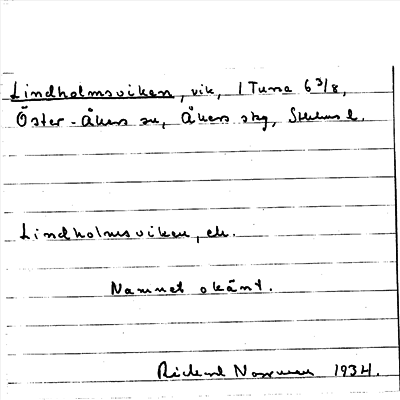 Lindholmsviken, vik, 1 Tuna 6 3/8,
Öster-Åkers sn, Åkers skg, Sthlms l.
Lindholmsviken, ek.
Namnet okänt.
Rickard 1934.